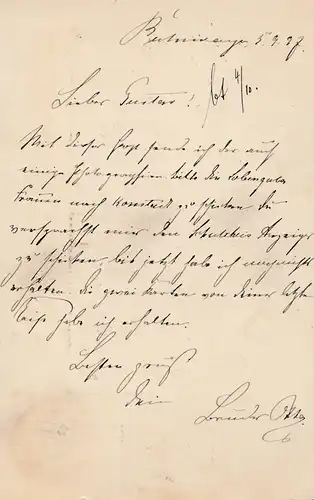 5.9.97.
bt 4/10.
Lieber Gustav!
Mit dieser Post sende ich dir auch
einige Photographien bitte die
Frauen nach zu schicken Du
versprachst mir den Anzeiger
zu schicken, bis jetzt habe ich noch nichts
erhalten. die zwei Karten von deiner letzten
Reise habe ich erhalten.
Besten Gruß
Dein
Bruder Otto